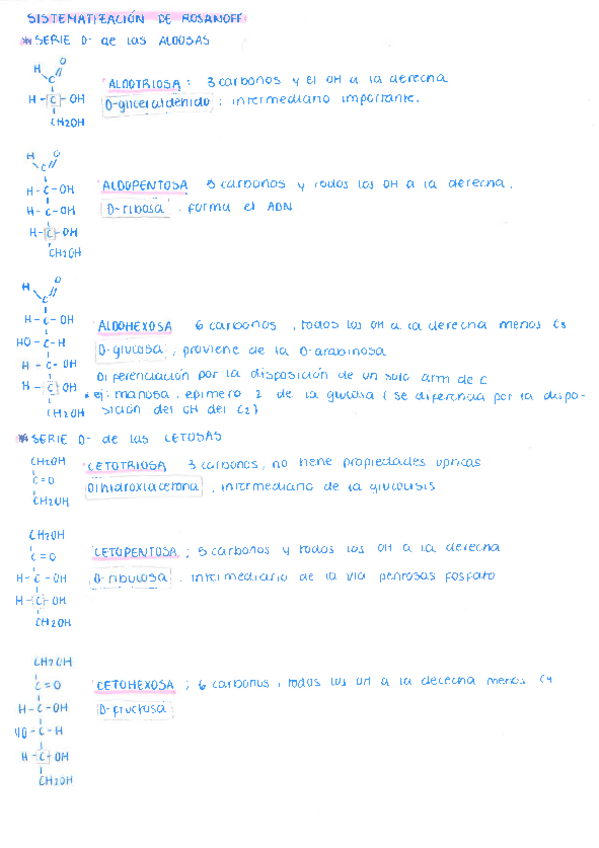 SISTEMATIZACIÓN DE ROSANOFF
* SERIE D- de las ALDOSAS
H O
C
ALDOTRIOSA: 3 carbonos y el OH a la derecha
H - C - OH
D-gliceraldehido: intermediario importante.
CH2OH
H O
C
H - C - OH
ALDOPENTOSA 5 carbonos y todos los OH a la derecha.
H - C - OH
D-ribosa. forma el ADN
H - C - OH
CH2OH
H O
C
H - C - OH
ALDOHEXOSA 6 carbonos, todos los OH a la derecha menos C3
HO - C - H
D-glucosa, proviene de la D-arabinosa
H - C - OH
Diferenciación por la disposición de un solo atm de C
H - C - OH
* ej: manosa, epimero 2 de la glucosa (se diferencia por la dispo-
CH2OH
sición del OH del C2)
* SERIE D- de las CETOSAS
CH2OH
CETOTRIOSA 3 carbonos, no tiene propiedades opticas
C=O
Dihidroxiacetona, intermediario de la glucolisis
CH2OH
CH2OH
C=O
CETOPENTOSA; 5 carbonos y todos los OH a la derecha
H - C - OH
D-ribulosa. intermediario de la via pentosas fosfato
H - C - OH
CH2OH
CH2OH
C=O
CETOHEXOSA; 6 carbonos, todos los OH a la derecha menos C4
H - C - OH
D-fructosa
HO - C - H
H - C - OH
CH2OH